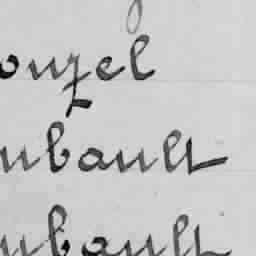 ouzel
ubault
ubault